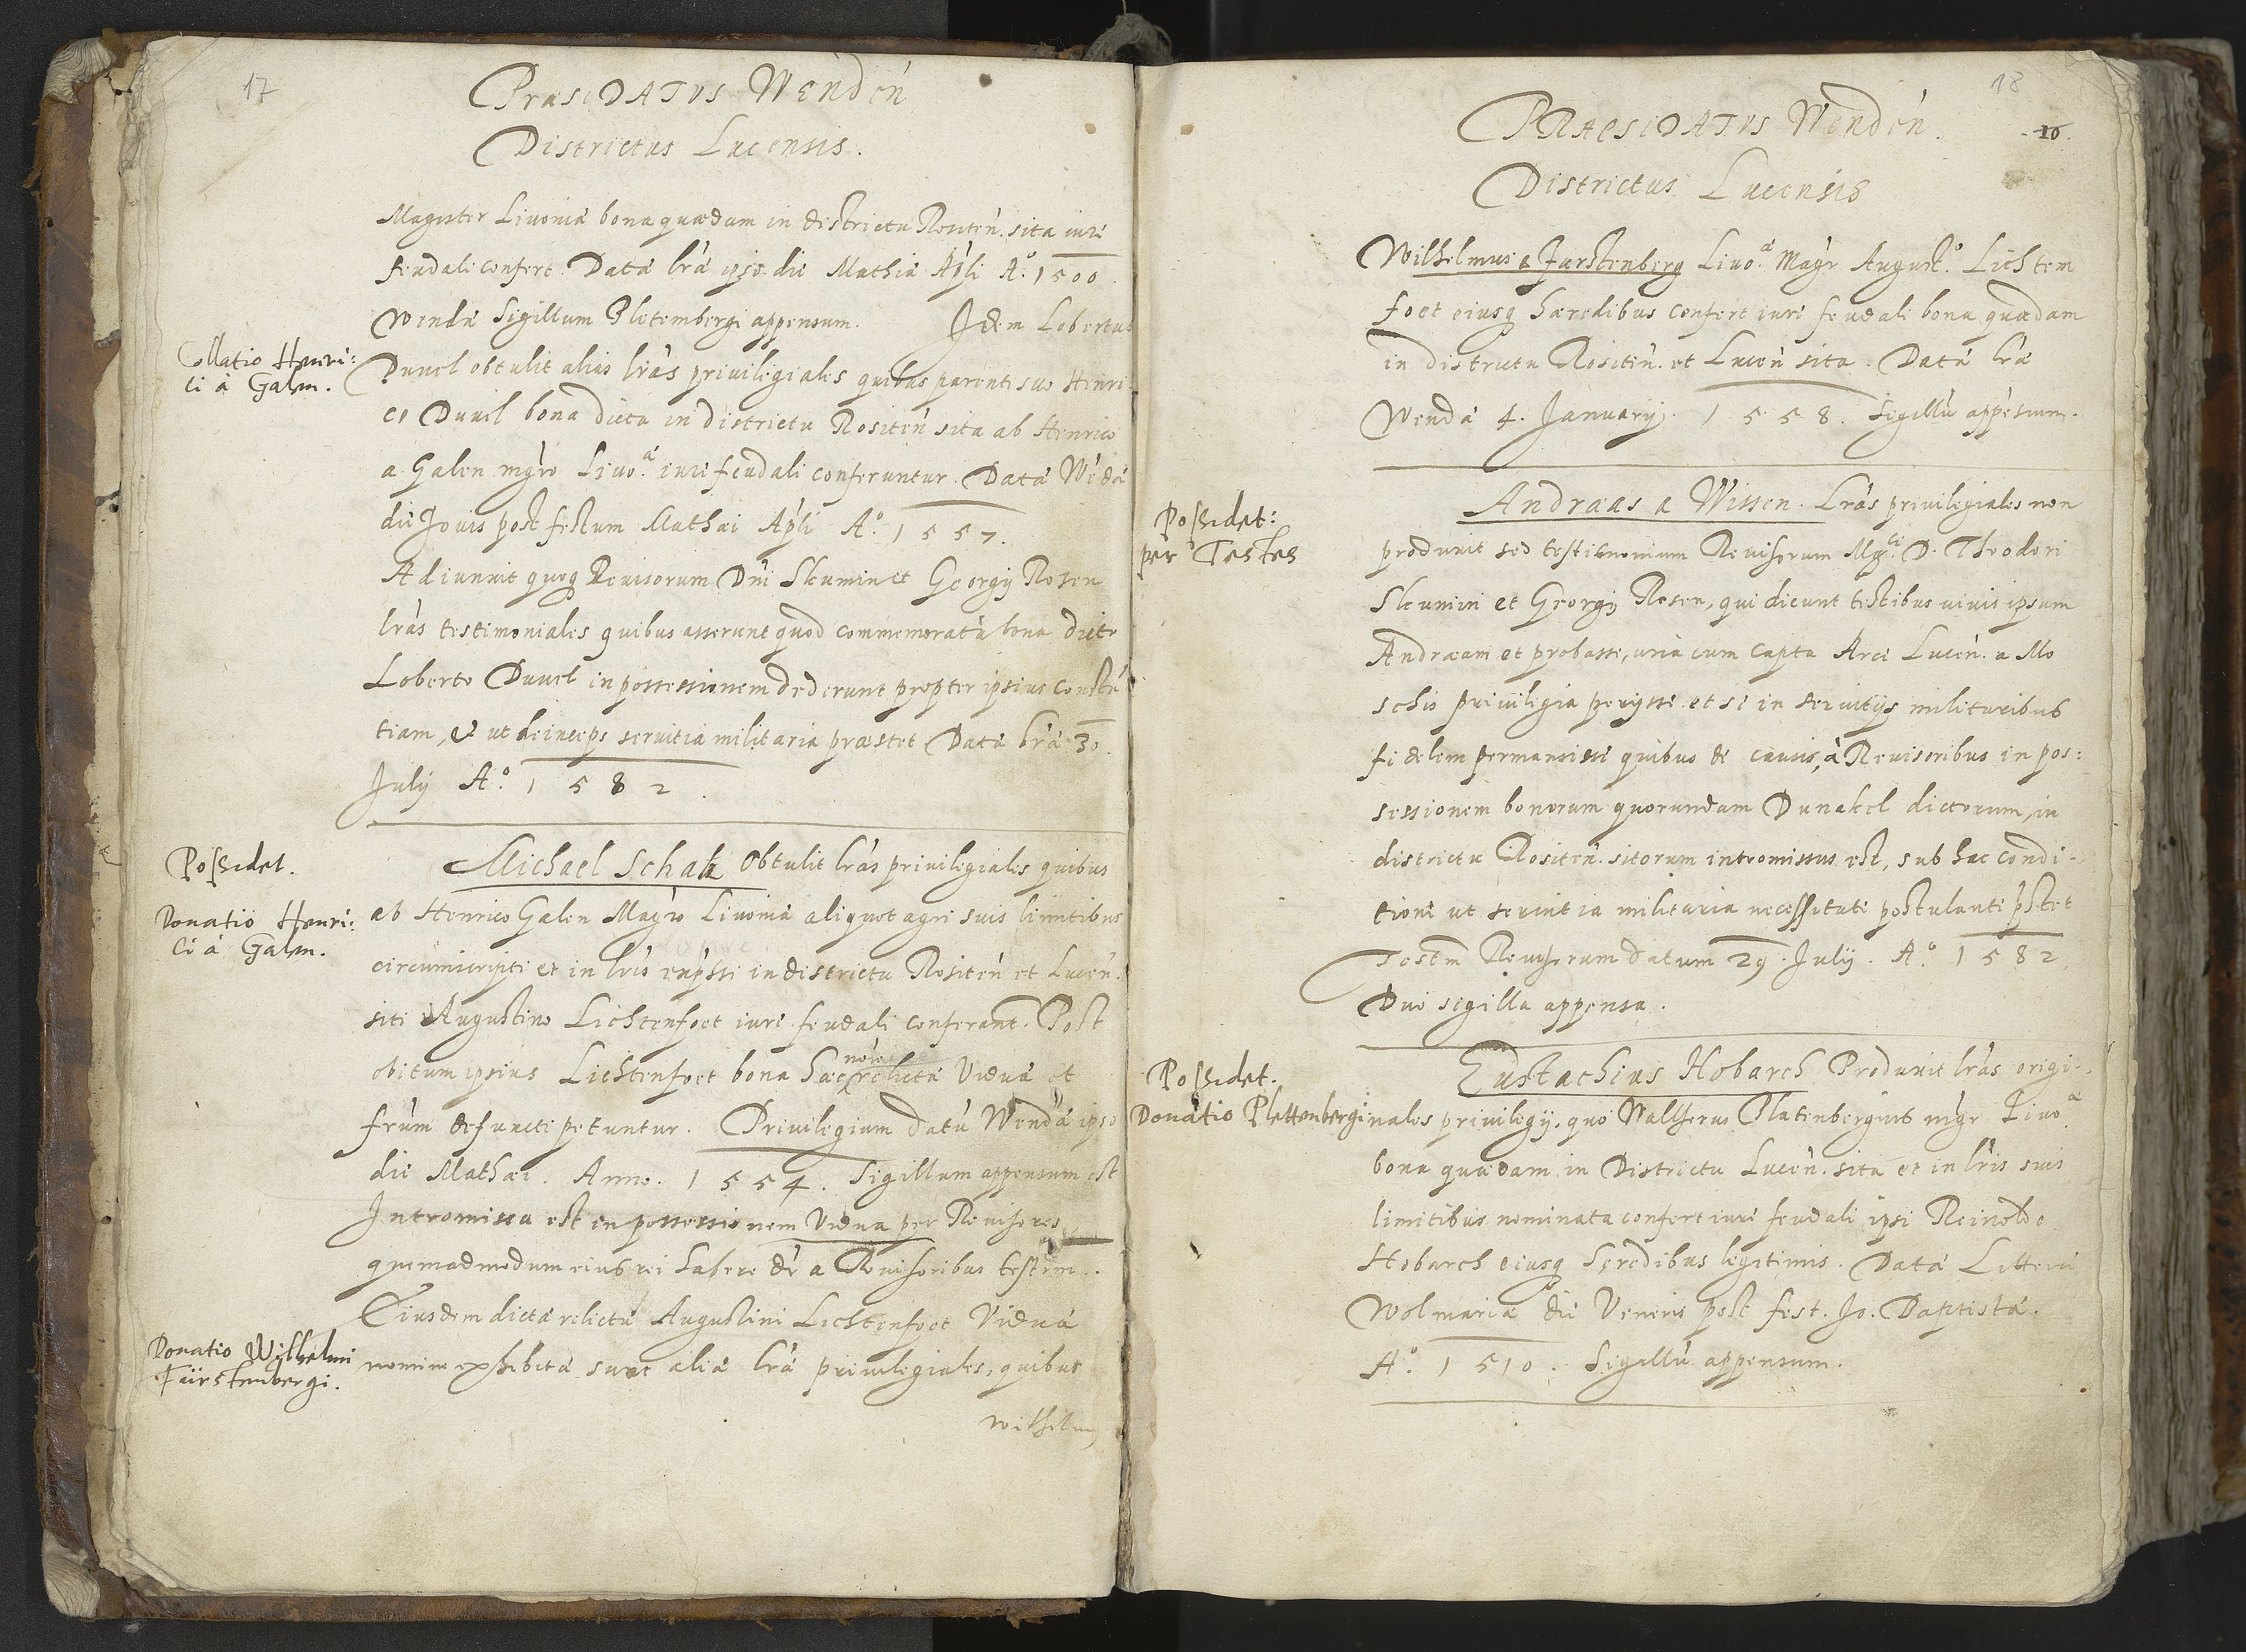 17
PræsidATVS Wendeń
Districtus Lucensis.
Magister Liuoniæ bona quædam in districtu Rositeń. sita iure
feudali confert. Datæ lræ ipso die Mathiæ Apli A° 1500.
Wendæ Sigillum Pletembergi appensum. Idem Lobertus
Collatio Henri:
ci à Galen.
Duuel obtulit alias lras priuilegiales quibus parenti suo Henri
co Duuel bona dicta in districtu Rositeń sita ab Henrico
a Galen mgro Liuo.æ iure feudali conferuntur. Datæ Wēdæ
die Jouis post festum Mathæi Apli A° 1557.
Adiunxit quoq Reuisorum Dni Sleumin et Georgij Rosen
lras testimoniales quibus asserunt quod commemorata bona dicto
Loberto Duuel in possessionem dederunt propter ipsius constā
tiam, et ut deinceps seruitia militaria præstet Datæ lræ 30.
July A° 1582.
Possidet.
Michael Schak Obtulit lras priuilegiales quibus
Donatio Henri:
ci à Galen.
ab Henrico Galen Magro Liuoniæ aliquot agri suis limitibus
circumscripti et in lris expssi in districtu Rositeń et Luceń.
siti Augustino Lichtenfoet iure feudali conferant. Post
obitum ipsius Lichtenfoet bona hæc relictæ Viduæ et
frum defuncti petuntur. Priuilegium datū Wendæ ipso
die Mathæi. Anno. 1554. Sigillum appensum est
Intromissa est in possessionem Vidua per Reuisores
quemadmodum eius rei habere dr a Reuisoribus testīm.
Eiusdem dictæ relictæ Augustini Lichtenfoet Viduæ
Donatio Wilhelmi
Fürstenbergi.
nomine exhibitæ sunt aliæ lræ priuilegiales, quibus
Wilhelmus
18
PRAesidATVS Wendeń.
16.
Districtus Lucensis
Wilhelmus a Furstenberg Liuo.æ Magr August.° Lichtem
foet eiusq hæredibus confert iure feudali bona quædam
in districtu Rositeń. et Luceń sita. Datæ lræ
Wendæ 4. January. 1558. Sigillū appēsum.
Possidet:
per Testes
Andræas a Wissen. Lras priuilegiales non
produxit sed testimonium Reuisorum Mgci D. Theodori
Sleumini et Georgij Rosen, qui dicunt testibus uiuis ipsum
Andræam et probasse, unà cum capta Arce Luceń. a Mo
schis priuilegia perysse et se in seruitijs militaribus
fidelem permansisse quibus de causis, à Reuisoribus in pos:
sessionem bonorum quorundam Dunakel dictorum, in
districtu Rositeń. sitorum intromissus est, sub hac condi-
tione ut seruitia militaria necessitate postulante pstet
Testm Reuisorum datum 29. July. A° 1582
Duo sigilla appensa.
Possidet.
Eustachius Hobarch Produxit lras origi-
Donatio Plettenbergi
nales priuilegij. quo Waltherus Platenbergius mgr Liuo.æ
bona quædam in Districtu Luceń. sita et in lris suis
limitibus nominata confert iure feudali ipsi Reinoldo
Hobarch eiusq heredibus legitimis. Datæ Litteræ
Wolmariæ die Veneris post fest. Jo. Baptistæ.
A° 1510. Sigillū appensum.